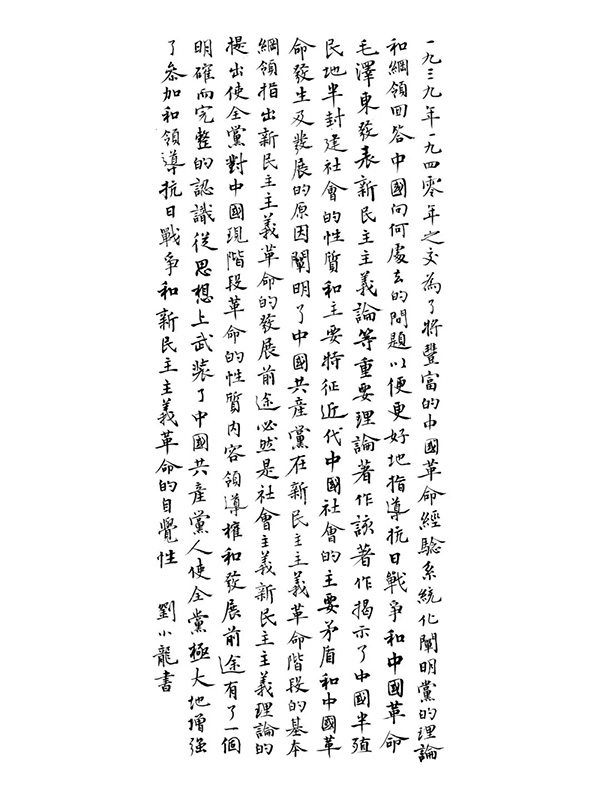 一九三九年一九四零年之交為了将豐富的中國革命經驗系統化闡明黨的理論
和綱領回答中國向何處去的問題以便更好地指導抗日戰争和中國革命
毛澤東發表新民主主義論等重要理論著作該著作揭示了中國半殖
民地半封建社會的性質和主要特征近代中國社會的主要矛盾和中國革
命發生及發展的原因闡明了中國共產黨在新民主主義革命階段的基本
綱領指出新民主主義革命的發展前途必然是社會主義新民主主義理論的
提出使全黨對中國現階段革命的性質内容領導權和發展前途有了一個
明確而完整的認識從思想上武裝了中國共產黨人使全黨極大地增強
了參加和領導抗日戰争和新民主主義革命的自覺性 劉小龍書